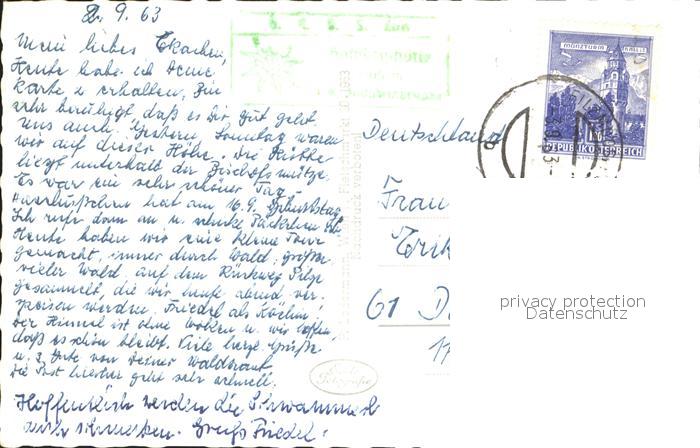 2. 9. 63
Mein liebes
Heute habe ich Deine
Karte erhalten, bin
sehr beruhigt daß es Dir gut geht.
Uns auch. Gestern Sonntag waren
wir auf dieser Höhe. Die Hütte
liegt unterhalb der Bischofsmütze.
Es war ein sehr schöner Tag.
hat am 16.9. Geburtstag
Ich rufe dann an u. schicke Päckchen ab
Heute haben wir eine kleine Tour
gemacht, immer durch Wald, großer
vieler Wald. auf dem Rückweg Pilze
gesammelt, die wir heute abend ver-
speisen werden. Friedel als Köchin!
Der Himmel ist ohne Wolken u. wir hoffen,
daß es schön bleibt. Viele herzl. Grüße
u. von Deiner Waldtraut
Die Post hierher geht sehr schnell.
Hoffentlich werden die Schwammerl
schmecken. Gruß Friedel!
Nachdruck verboten!
Echte
Fotografie
Deutschland
Frau
Erik
61 D
MÜNZTURM HALL
1.50
REPUBLIK ÖSTERREICH
privacy protection
Datenschutz